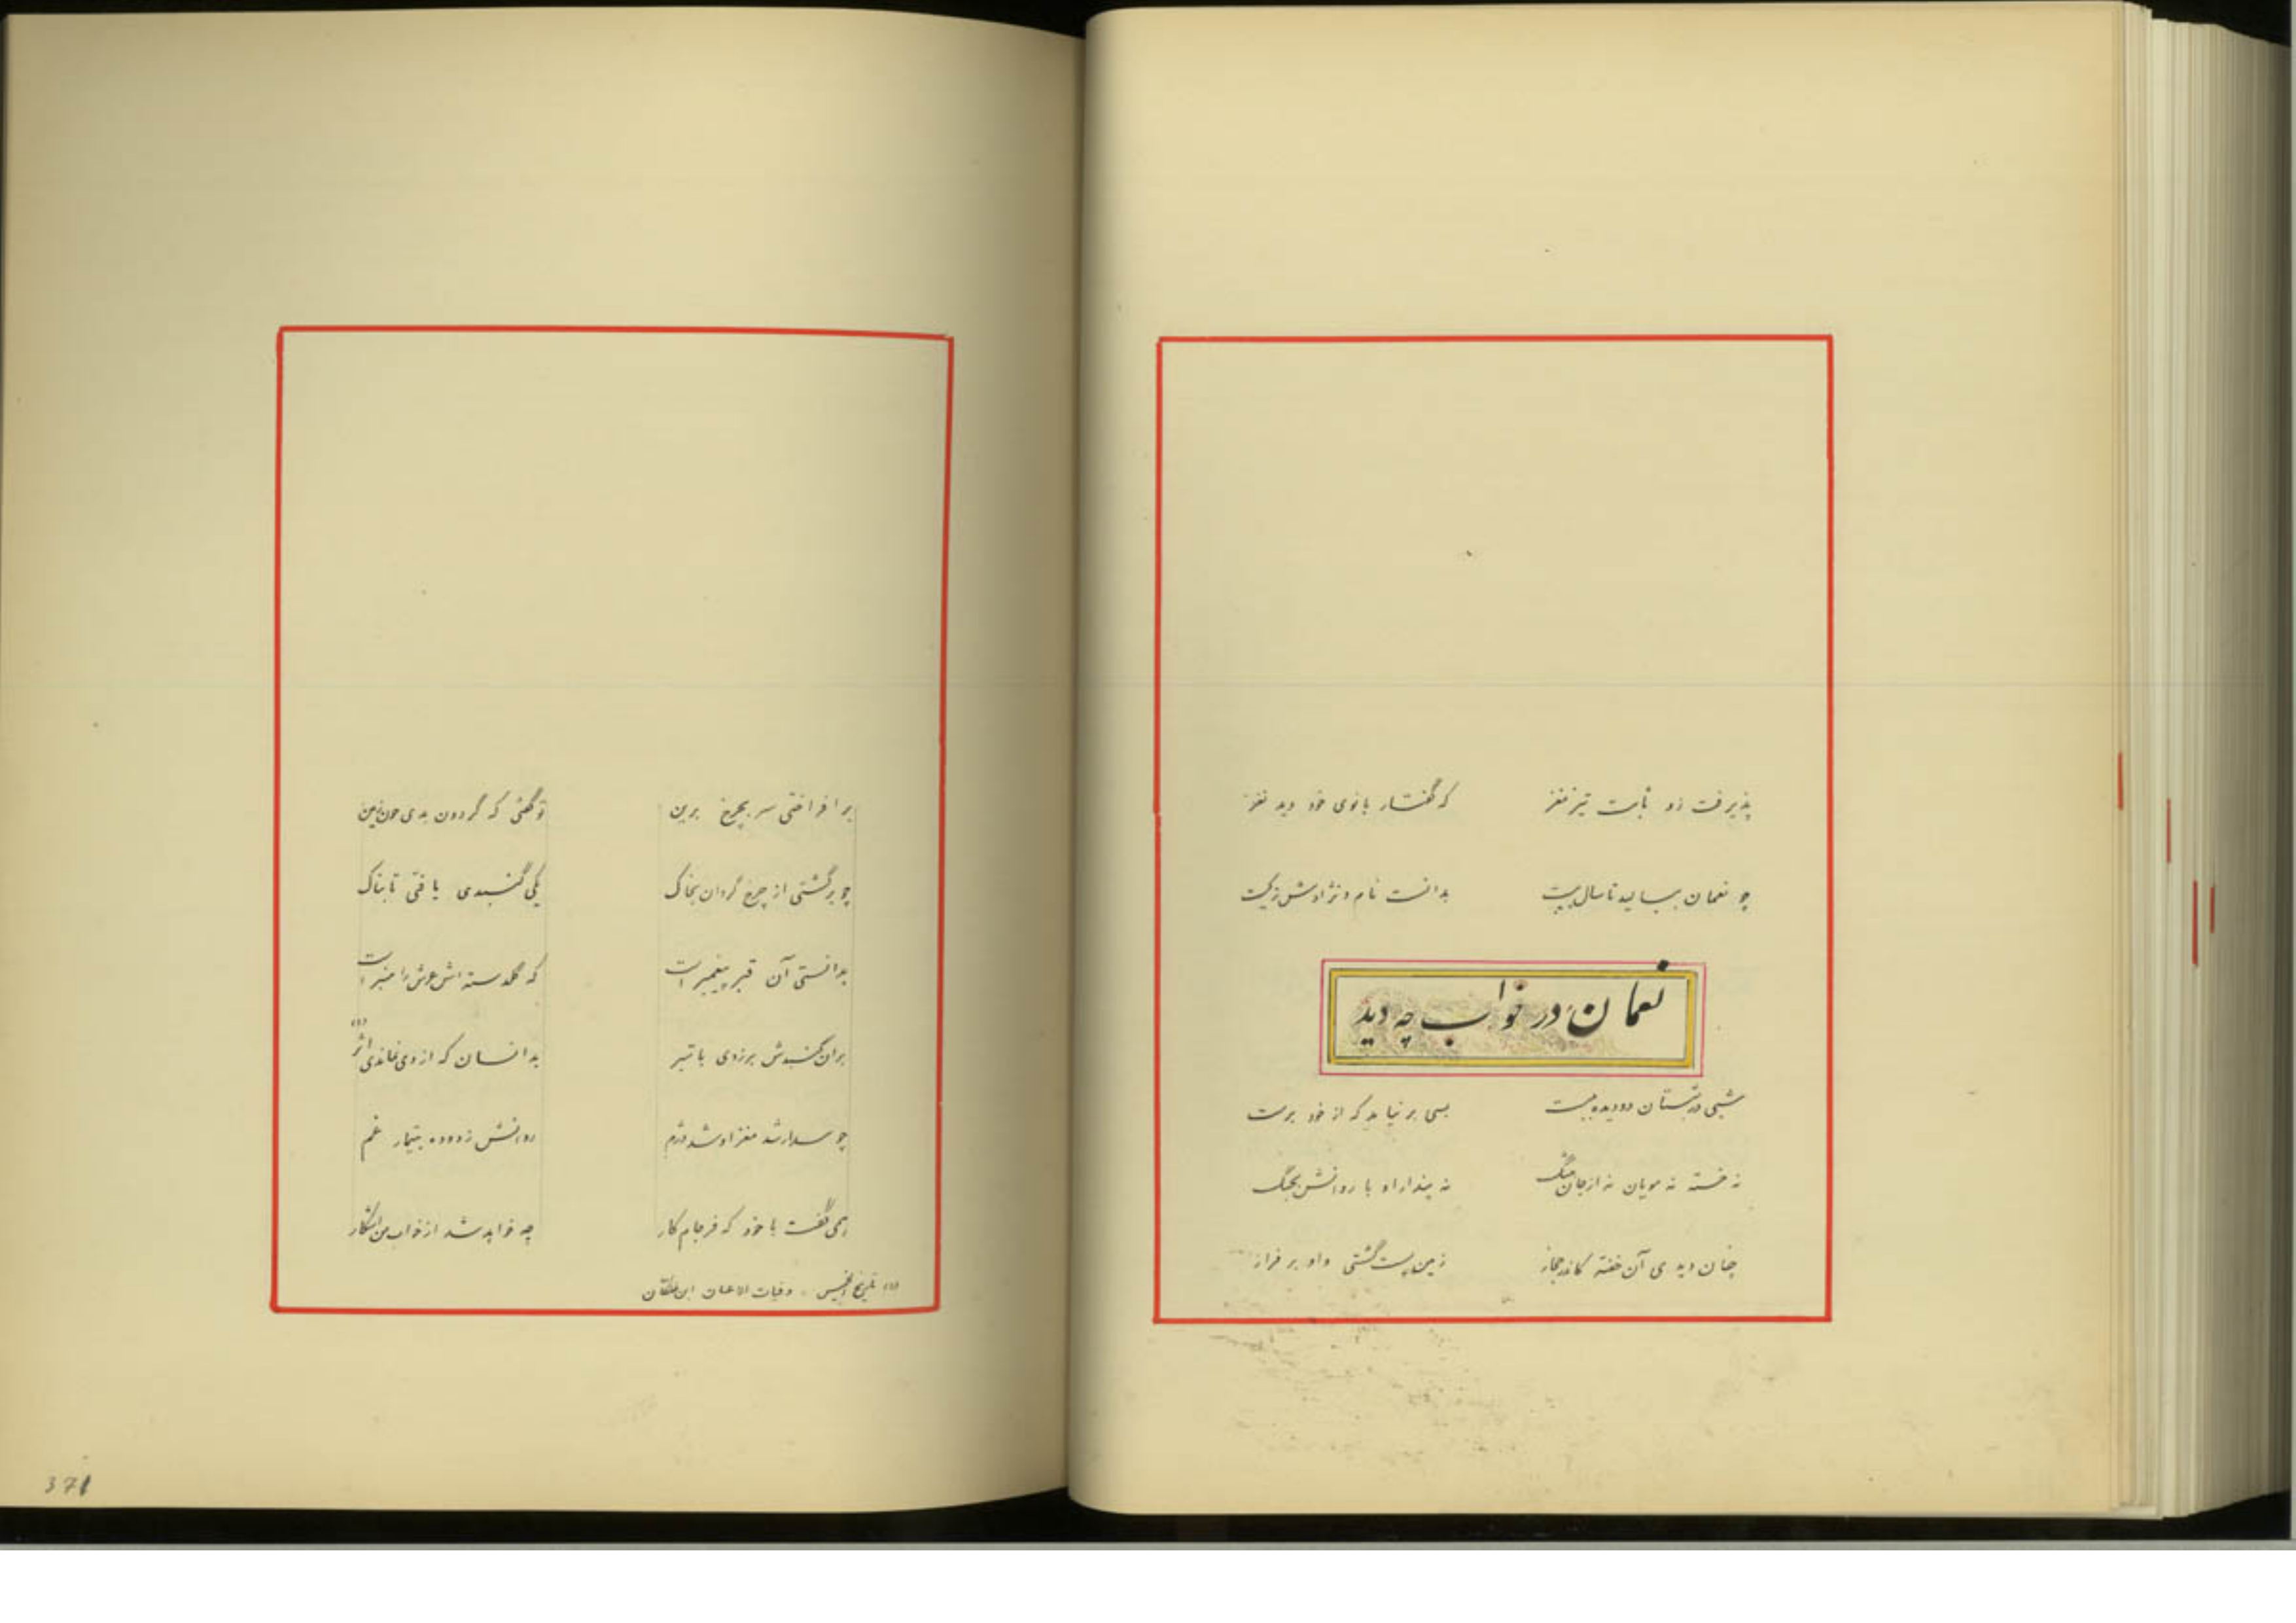 پذیرفت زو ثابت تیز مغز که گفتار بانوی خود دید نغز
چو نعمان ببالید تا سال بیست بدانست نام و نژادش ز کیست
نعمان در خواب چه دید
شبی در شبستان دو دیده ببست بسی بر نیامد که از خود برست
نه خسته نه مویان نه از جان بتنگ نه پندار او با روانش بجنگ
چنان دیدی آن خفته کاندر حجاز زمین پست گشتی و او بر فراز
بر افراختی سر بچرخ برین تو گفتی که گردون بدی چون زمین
چو برگشتی از چرخ گردان بخاک یکی گنبدی یافتی تابناک
بدانستی آن قبر پیغمبر است که گلدسته اش عرش را منبر است
بران گنبدش برزدی با تبر بدانسان که از وی نماندی اثر (۱)
چو بیدار شد مغز او شد دژم روانش زدوده بتیمار غم
همی گفت با خود که فرجام کار چه خواهد شد از خواب من آشکار
(۱) تاریخ الخمیس - وفیات الاعیان ابن خلقان
371